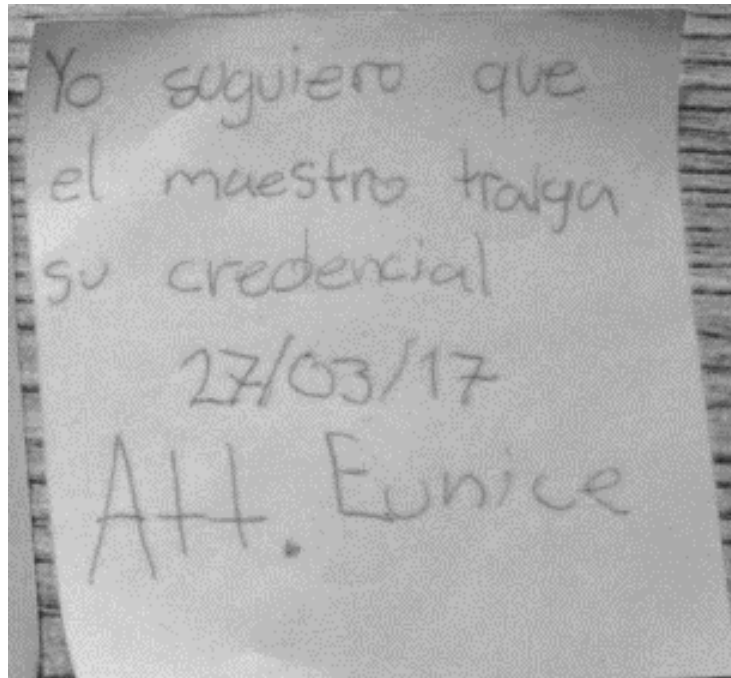 Yo suguiero que
el maestro traiga
su credencial
27/03/17
Att. Eunice